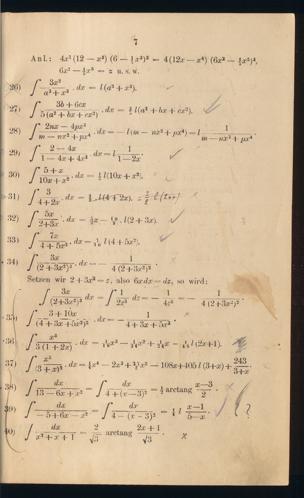 7
Anl: 4x²(12 — x²) (6 — ½x²)³ = 4(12x — x³) (6x² — ½x⁴)³,
6x² — ½x⁴ = z u. s. w.
26) ∫ 3x² / (a³ + x³) . dx = l(a³ + x³).
27) ∫ (3b + 6cx) / 5(a² + bx + cx²) . dx = ⅗ l(a² + bx + cx²).
28) ∫ (2nx — 4px³) / (m — nx² + px⁴) . dx = — l(m — nx² + px⁴) = l 1 / (m — nx² + px⁴) .
29) ∫ (2 — 4x) / (1 — 4x + 4x²) . dx = l 1 / (1—2x) .
30) ∫ (5 + x) / (10x + x²) . dx = ½ l(10x + x²).
31) ∫ 3 / (4+2x) . dx = l(4 + 2x).
32) ∫ 5x / (2+3x) . dx = l(2 + 3x).
33) ∫ 7x / (4 + 5x²) . dx = l(4 + 5x²).
34) ∫ 3x / (2 + 3x²)³ . dx = — 1 / 4(2 + 3x²)² .
Setzen wir 2 + 3x² = z, also 6xdx = dz, so wird:
∫ 3x / (2+3x²)³ . dx = ∫ 1 / 2z³ . dz = — 1 / 4z² = — 1 / 4(2 + 3x²)² .
35) ∫ (3 + 10x) / (4 + 3x + 5x²)² . dx = — 1 / (4 + 3x + 5x²) .
36) ∫ x³ / 3(1 + 2x) . dx = l(2x+1).
37) ∫ x⁵ / (3 + x)² . dx = ¼x⁴ — 2x³ + x² — 108x+405 l(3+x) + 243 / (3+x) .
38) ∫ dx / (13 — 6x + x²) = ∫ dx / (4 + (x—3)²) = ½ arctang (x—3) / 2 .
39) ∫ dx / (—5+6x — x²) = ∫ dx / (4 — (x — 3)²) = ¼ l (x—1) / (5—x) .
40) ∫ dx / (x² + x + 1) = 2 / √3 arctang (2x + 1) / √3 .